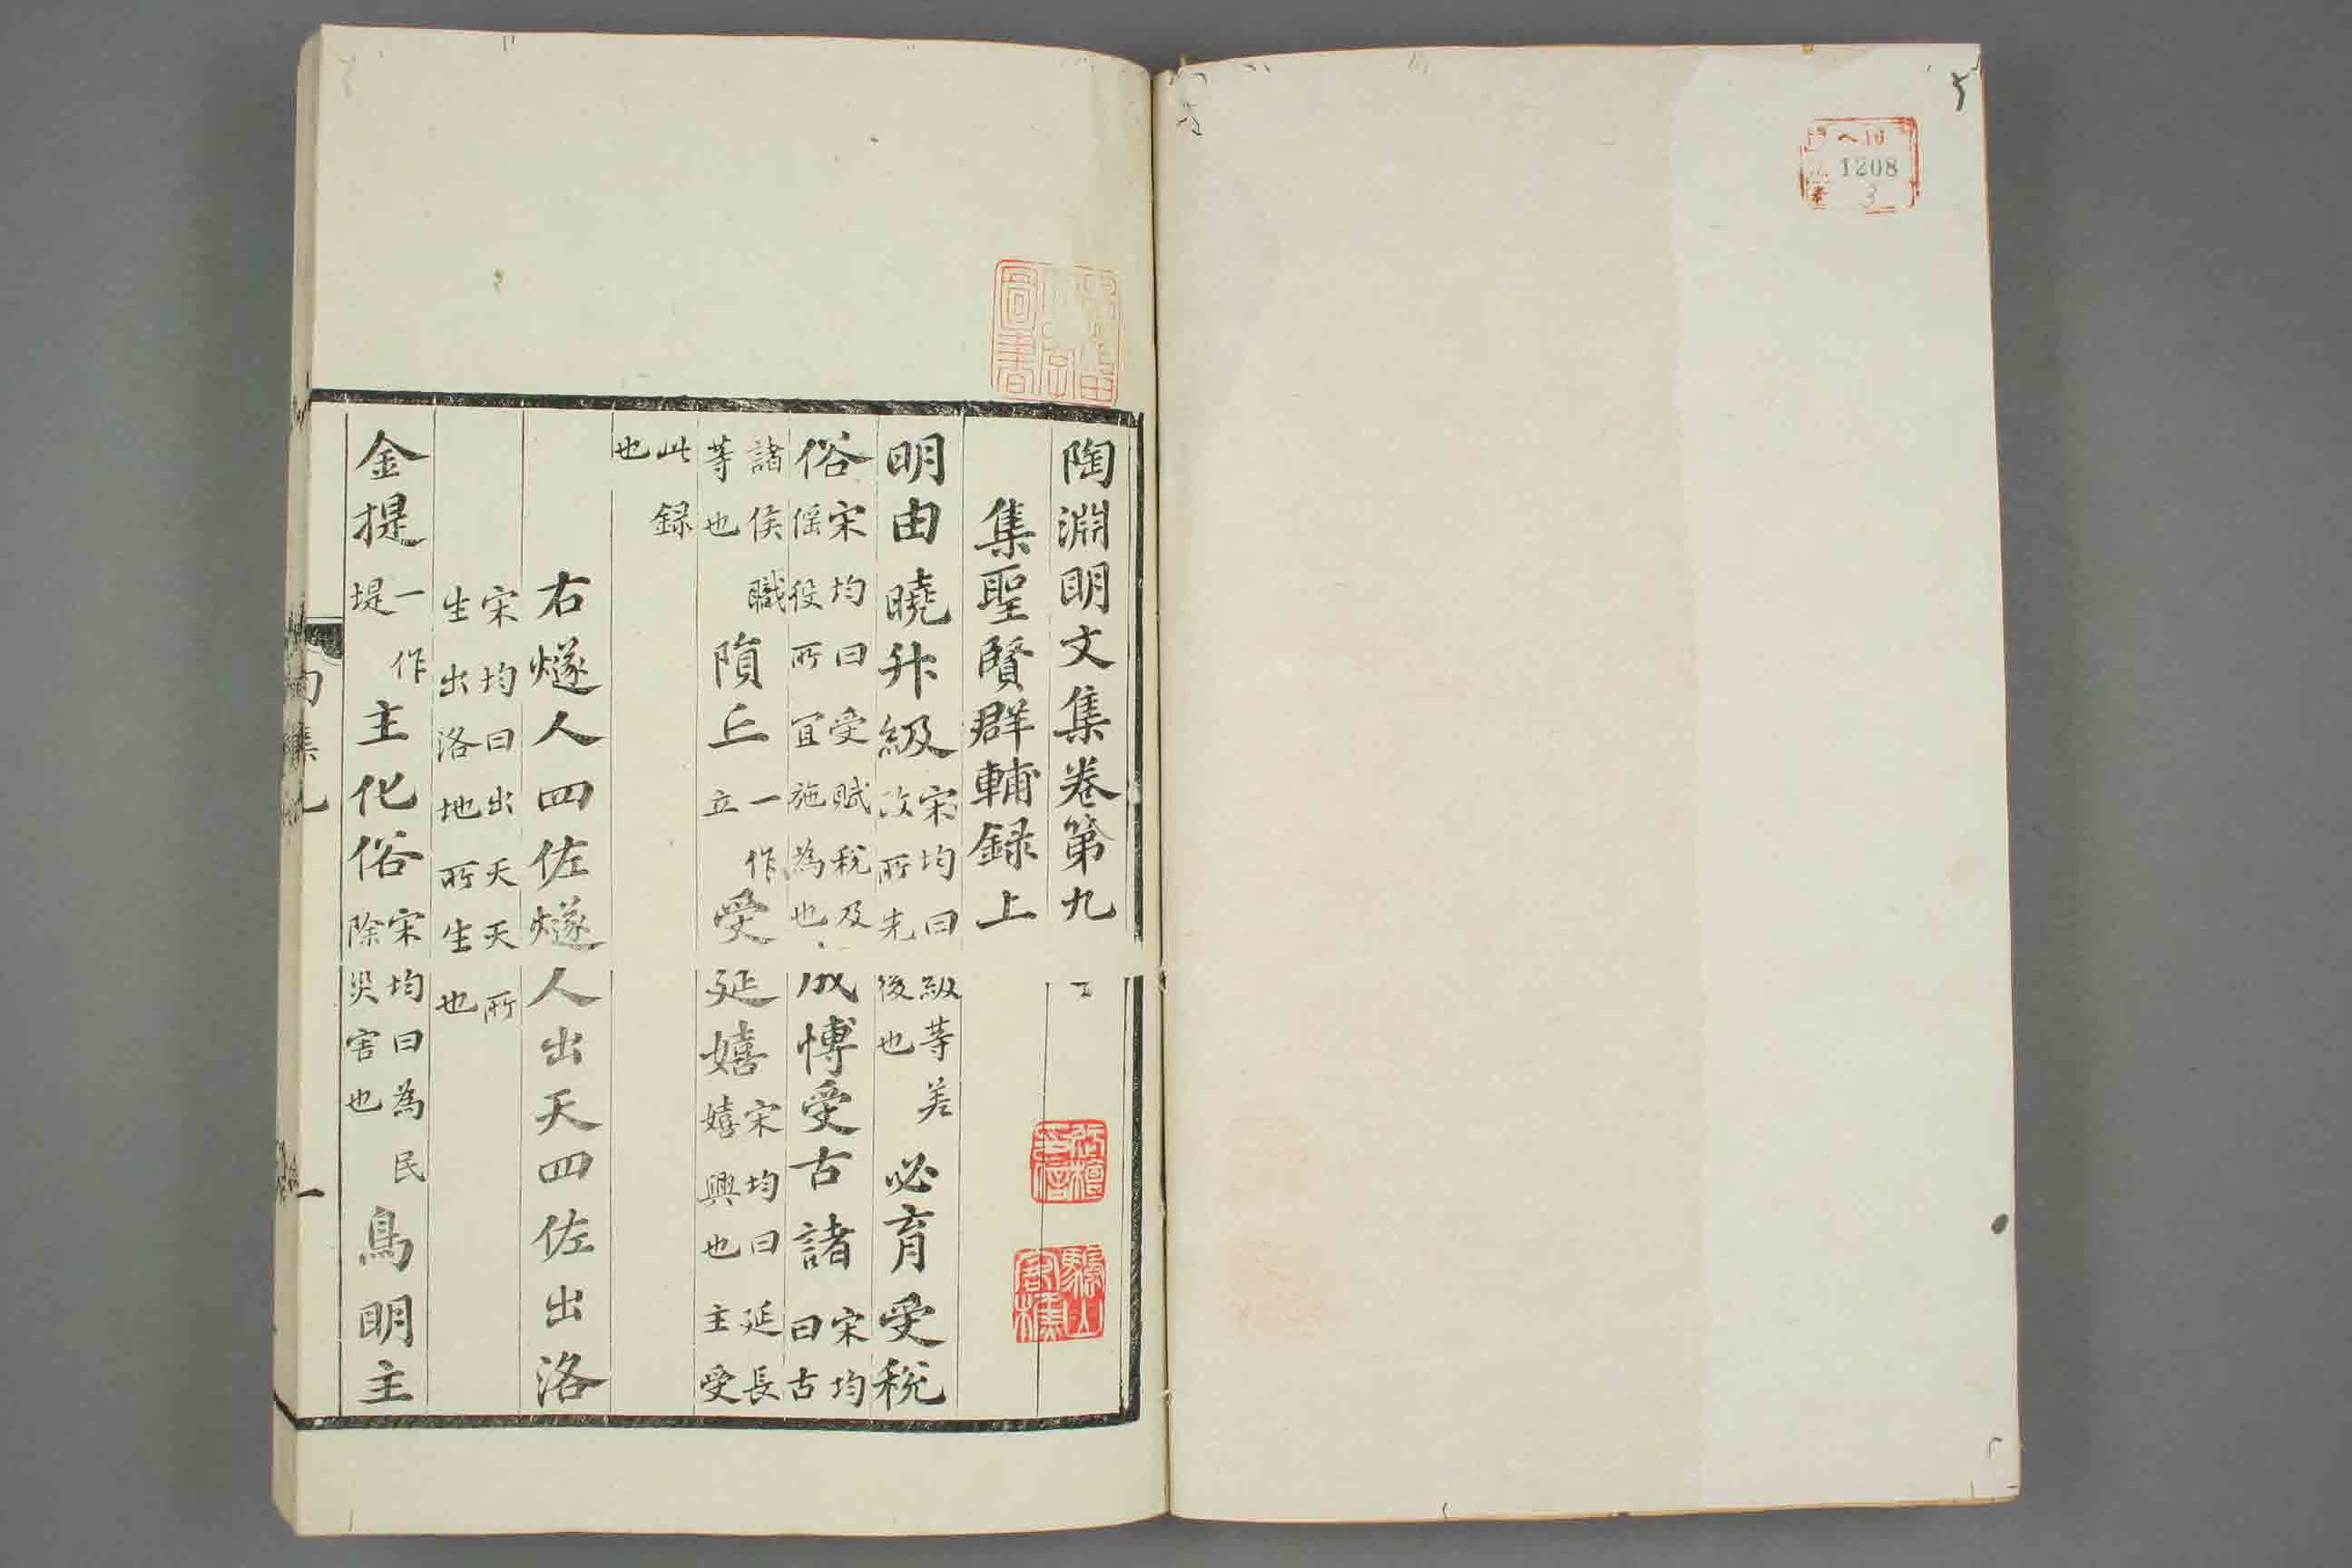 ヘ16
1208
3
陶淵明文集卷第九
集聖賢群輔録上
明由曉升級宋均曰級等差政所先後也必育受稅
俗宋均曰受賦稅及傜役所宜施為也成博受古諸宋均曰古
諸侯職等也隕丘一作立受延嬉宋均曰延長嬉興也主受
此録也
右燧人四佐燧人出天四佐出洛
宋均曰出天天所生出洛地所生也
金提一作堤主化俗宋均曰為民除災害也鳥明主
圖書